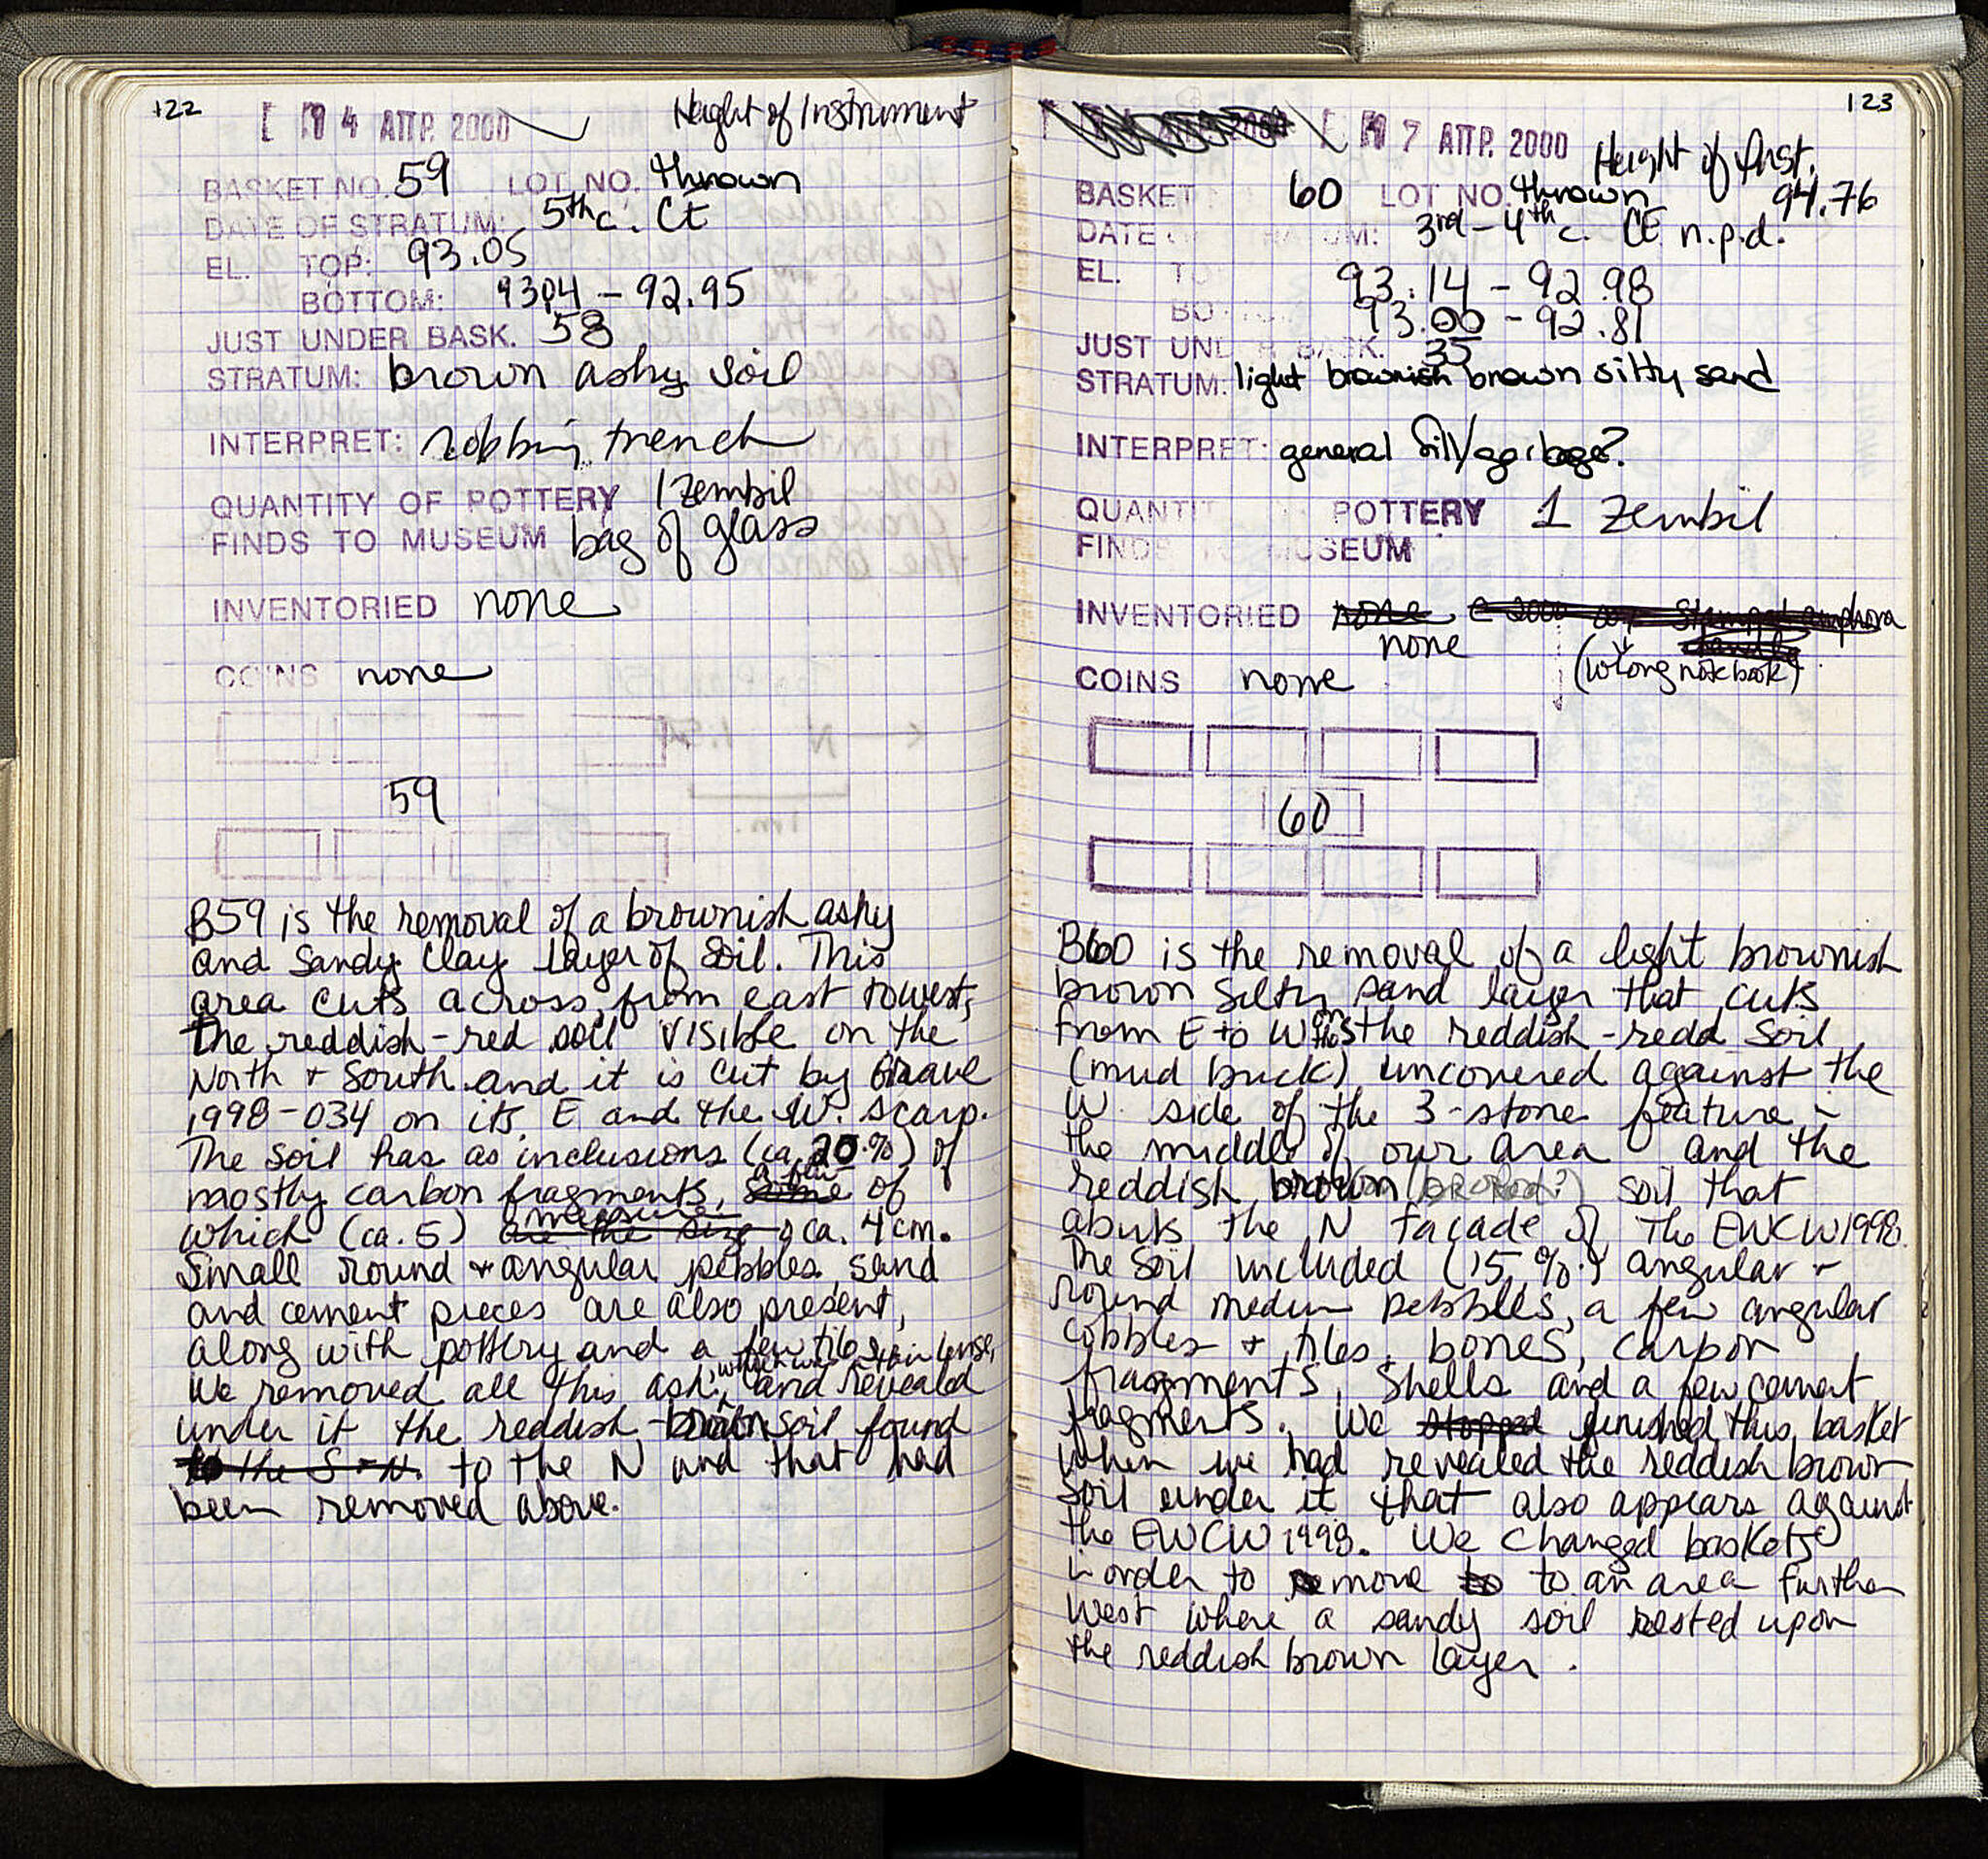 122
[ 14 ΑΠΡ. 2000
Height of Instrument
BASKET NO. 59 LOT NO. thrown
DATE OF STRATUM: 5th c. CE
EL. TOP: 93.05
BOTTOM: 93.04 - 92.95
JUST UNDER BASK. 58
STRATUM: brown ashy soil
INTERPRET: robbing trench
QUANTITY OF POTTERY 1 zembil
FINDS TO MUSEUM bag of glass
INVENTORIED none
COINS none
59
B59 is the removal of a brownish ashy
and sandy clay layer of soil. This
area cuts across, from east to west,
the reddish-red soil visible on the
North + South and it is cut by Grave
1998-034 on its E and the W. scarp.
The soil has as inclusions (ca. 20%) of
mostly carbon fragments, some a few of
which (ca. 5) are the size measure ca. 4 cm.
Small round + angular pebbles, sand
and cement pieces are also present,
along with pottery and a few tiles.
We removed all this ash, which was thin lense, and revealed
under it the reddish-brown soil found
to the S + N. to the N and that had
been removed above.
123
[ 17 ΑΠΡ. 2000
Height of Inst.
94.76
BASKET 60 LOT NO. thrown
DATE OF STRATUM: 3rd-4th c. CE n.p.d.
EL. TO 93.14 - 92.98
BO 93.00 - 92.81
JUST UNDER BASK. 35
STRATUM: light brownish brown silty sand
INTERPRET: general fill/garbage?
QUANTIT POTTERY 1 zembil
FINDS TO MUSEUM
INVENTORIED none e 2000 stamped amphora
handle
none
(wrong notebook)
COINS none
60
B60 is the removal of a light brownish
brown silty sand layer that cuts
from E to W the reddish-redd soil
(mud brick) uncovered against the
W. side of the 3-stone feature in
the middle of our area and the
reddish brown soil that
abuts the N facade of the EWCW1998.
The soil included (15%) angular +
round medium pebbles, a few angular
cobbles + tiles, bones, carbon
fragments, shells and a few cement
fragments. We stopped finished this basket
when we had revealed the reddish brown
soil under it that also appears against
the EWCW 1998. We changed baskets
in order to move to to an area further
West where a sandy soil rested upon
the reddish brown layer.